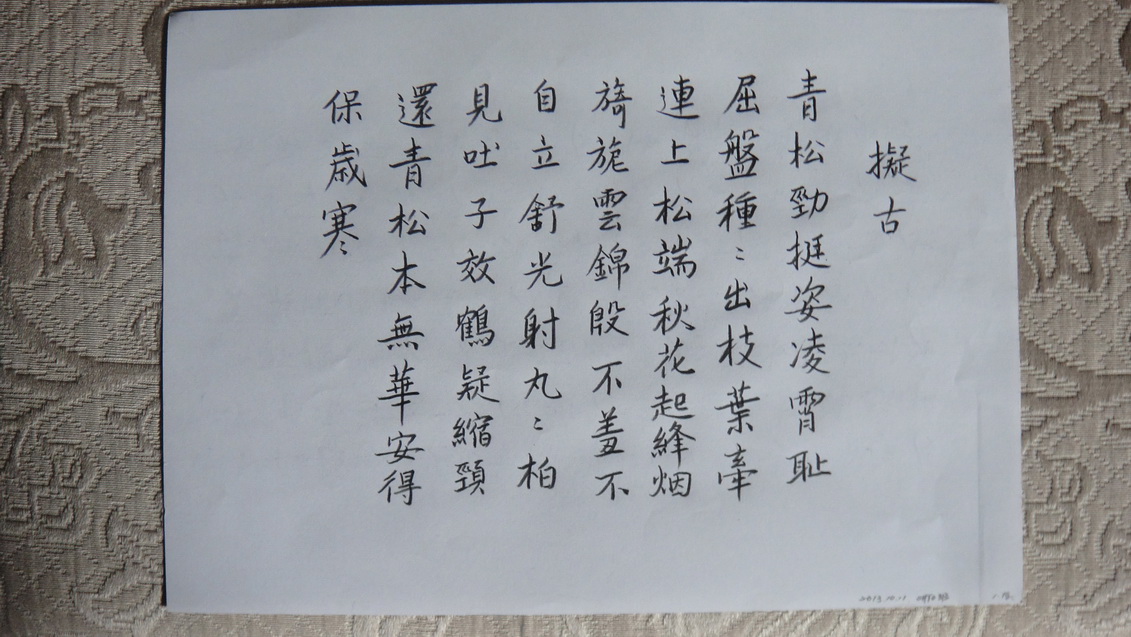 擬古
青松勁挺姿凌霄恥
屈盤種〻出枝葉牽
連上松端秋花起絳烟
旖旎雲錦殷不羞不
自立舒光射丸〻柏
見吐子效鶴疑縮頸
還青松本無華安得
保歳寒
2013.10.1